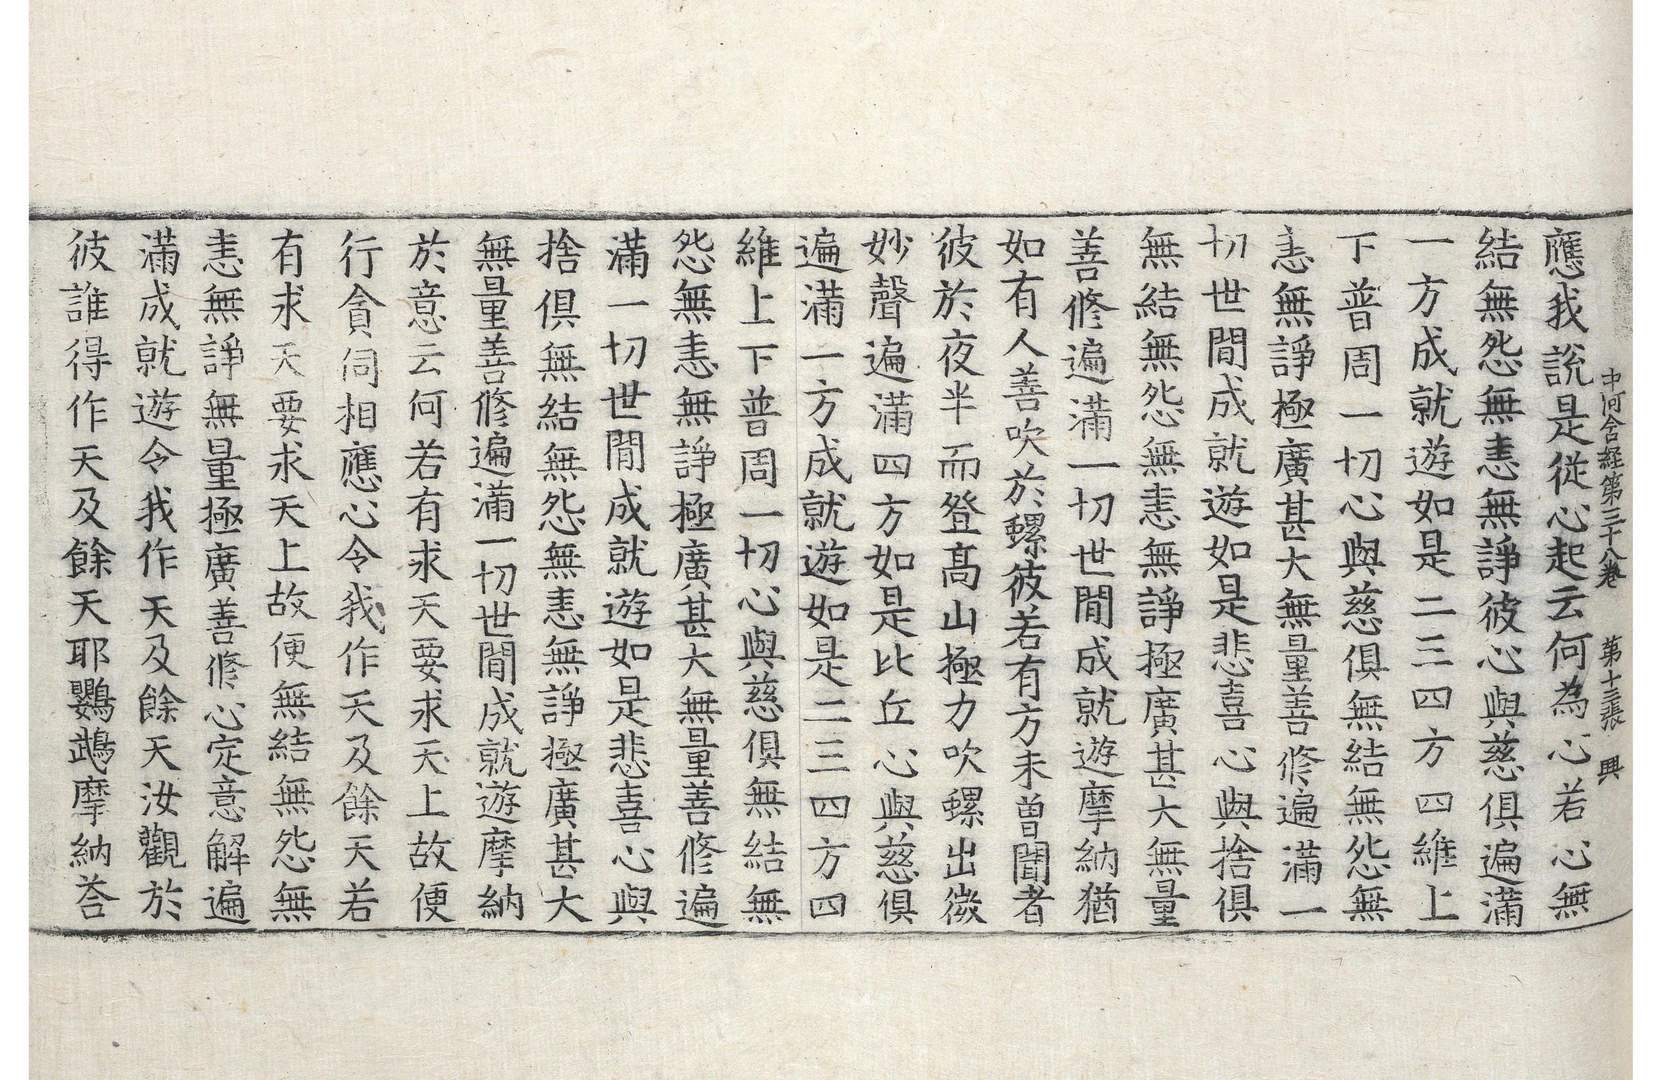 中阿含経第三十八卷 第十三張 興
應我說是從心起云何為心若心無
結無怨無恚無諍彼心與慈俱遍滿
一方成就遊如是二三四方四維上
下普周一切心與慈俱無結無怨無
恚無諍極廣甚大無量善修遍滿一
切世閒成就遊如是悲喜心與捨俱
無結無怨無恚無諍極廣甚大無量
善修遍滿一切世閒成就遊摩納猶
如有人善吹於螺彼若有方未曽聞者
彼於夜半而登髙山極力吹螺出微
妙聲遍滿四方如是比丘心與慈俱
遍滿一方成就遊如是二三四方四
維上下普周一切心與慈俱無結無
怨無恚無諍極廣甚大無量善修遍
滿一切世閒成就遊如是悲喜心與
捨俱無結無怨無恚無諍極廣甚大
無量善修遍滿一切世閒成就遊摩納
於意云何若有求天要求天上故便
行貪伺相應心令我作天及餘天若
有求天要求天上故便無結無怨無
恚無諍無量極廣善修心定意解遍
滿成就遊令我作天及餘天汝觀於
彼誰得作天及餘天耶鸚鵡摩納荅